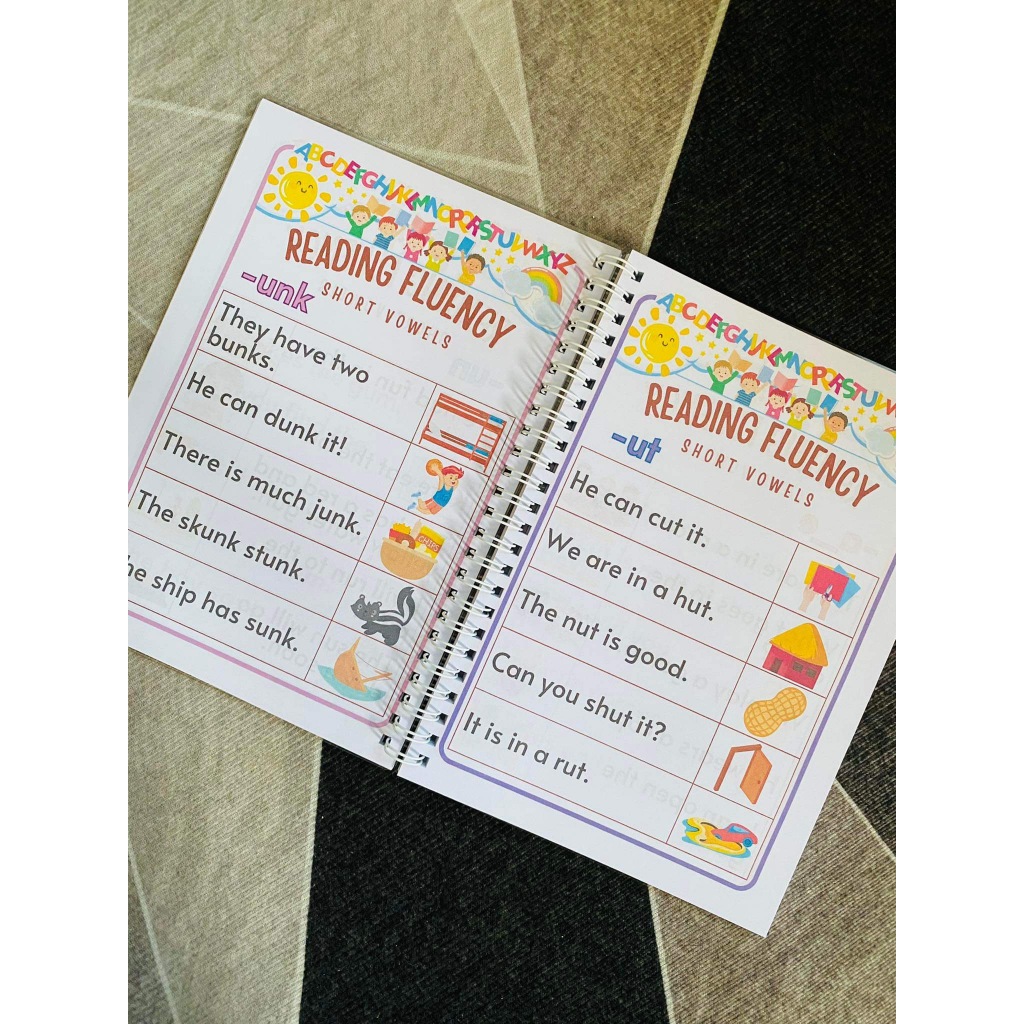 ABCDEFGHIJKLMNOPQRSTUVWXYZ
READING FLUENCY
-unk SHORT VOWELS
They have two
bunks.
He can dunk it!
There is much junk.
CHIPS
The skunk stunk.
he ship has sunk.
ABCDEFGHIJKLMNOPQRSTUVW
READING FLUENCY
-ut SHORT VOWELS
He can cut it.
We are in a hut.
The nut is good.
Can you shut it?
It is in a rut.